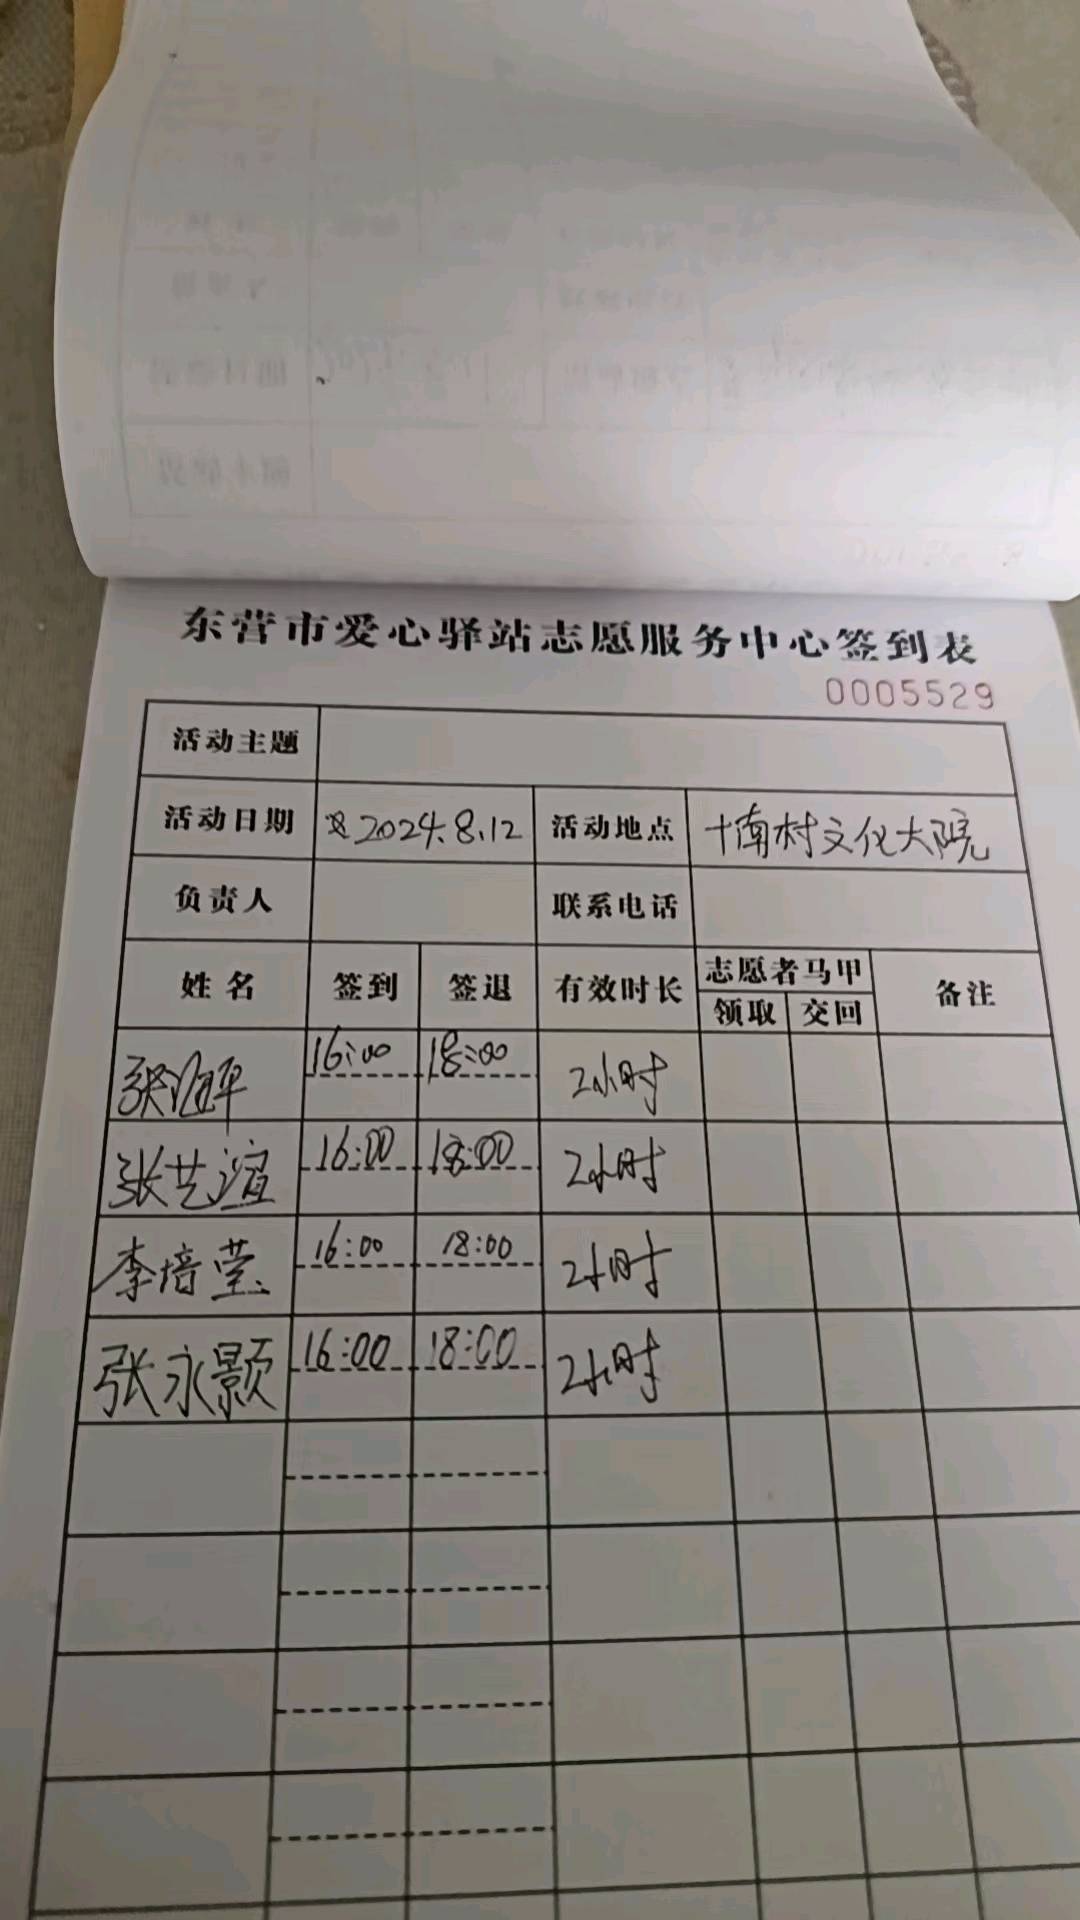 东营市爱心驿站志愿服务中心签到表
0005529
活动主题
活动日期 2024.8.12 活动地点 十南村文化大院
负责人 联系电话
姓名 签到 签退 有效时长 志愿者马甲 备注
领取 交回
张 平 16:00 18:00 2小时
张艺谊 16:00 18:00 2小时
李培莹 16:00 18:00 2小时
张永颢 16:00 18:00 2小时